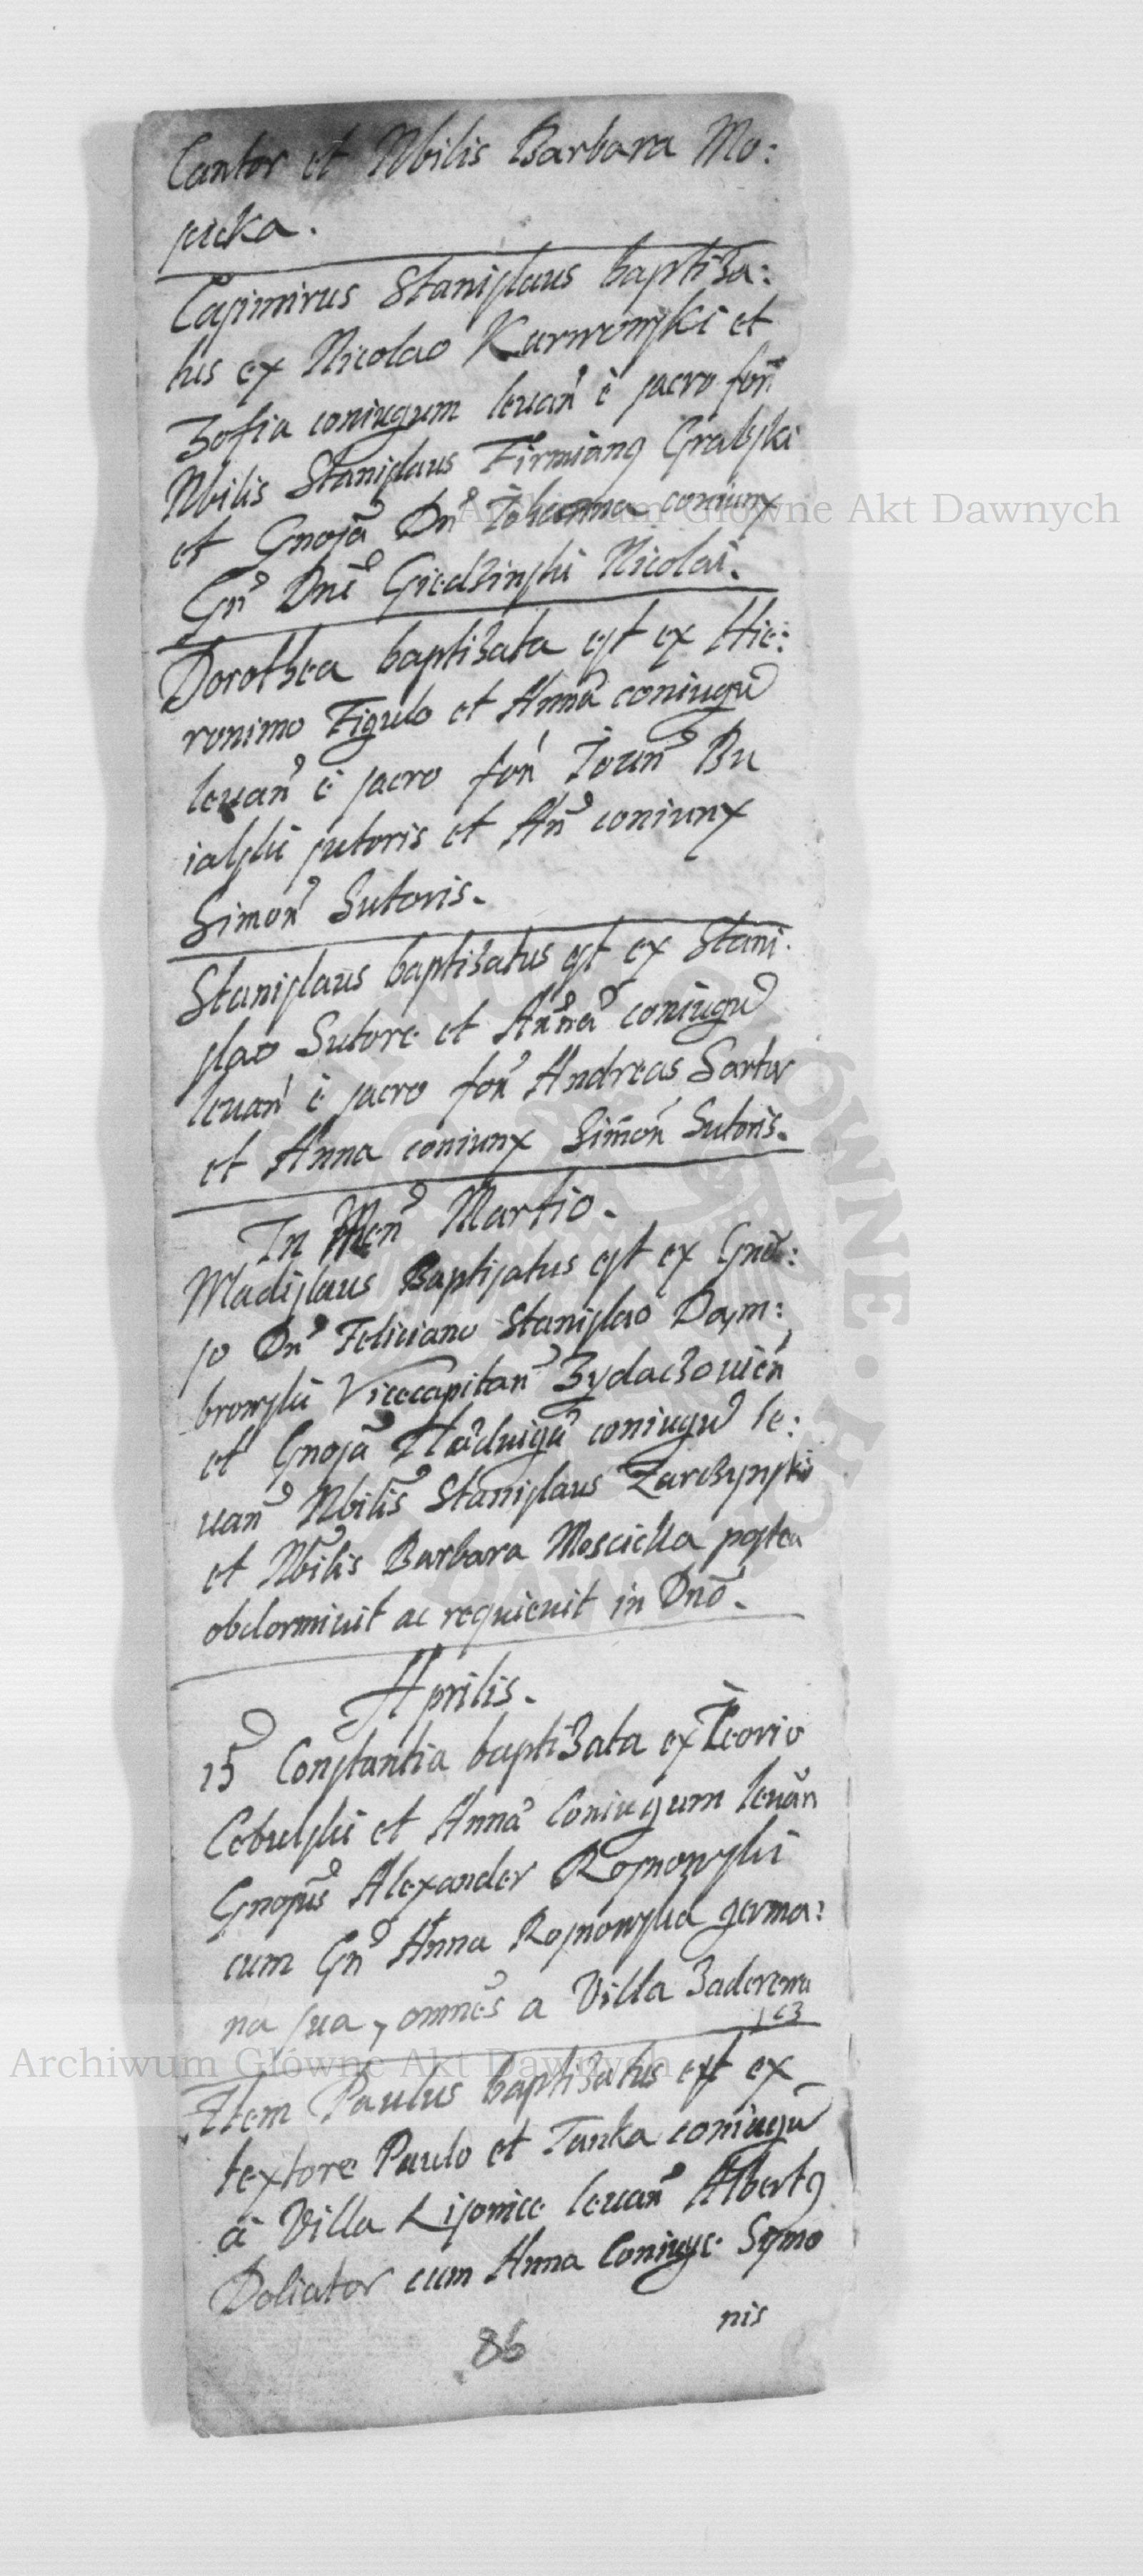 Cantor et Nbilis Barbara Mo:
scicka.
Casimirus Stanislaus baptiza:
tus ex Nicolao Kurwowski et
Zofia coniugum leuan è sacro fon
Nbilis Stanislaus Firmianus Grabski
et Gnosa Dn Iohanna coniunx
Gn Dni Giedzinski Nicolai.
Dorothea baptizata est ex Hie:
ronimo Figulo et Anna coniugu
leuan è sacro fon Ioan Bu
ialski sutoris et An coniunx
Simon Sutoris.
Stanislaus baptizatus est ex Stani.
slao Sutore et Anna coniugu
leuan è sacro fon Andreas Sartor
et Anna coniunx Simon Sutoris.
In Men Martio.
Wladislaus Baptisatus est ex Gno:
so Dn Feliciano Stanislao Dam:
browski Vicecapitan Zydaczouien
et Gnosa Haduiga coniugu le:
uan Nbilis Stanislaus Zarczynski
et Nbilis Barbara Moscicka postea
obdormiuit ac requieuit in Dno.
Aprilis.
15 Constantia baptizata ex
Cebulski et Anna Coniugum leuan
Gnosus Alexander Rosnowski
cum Gn Anna Rosnowska germa:
na sua, omnes a Villa Zaderewa
cz
Item Paulus baptizatus est ex
textore Paulo et Tanka coniugu
à Villa Lisowice leuan Albertus
Doliator cum Anna Coniuge Symo
nis
86
Archiwum Główne Akt Dawnych
Archiwum Główne Akt Dawnych